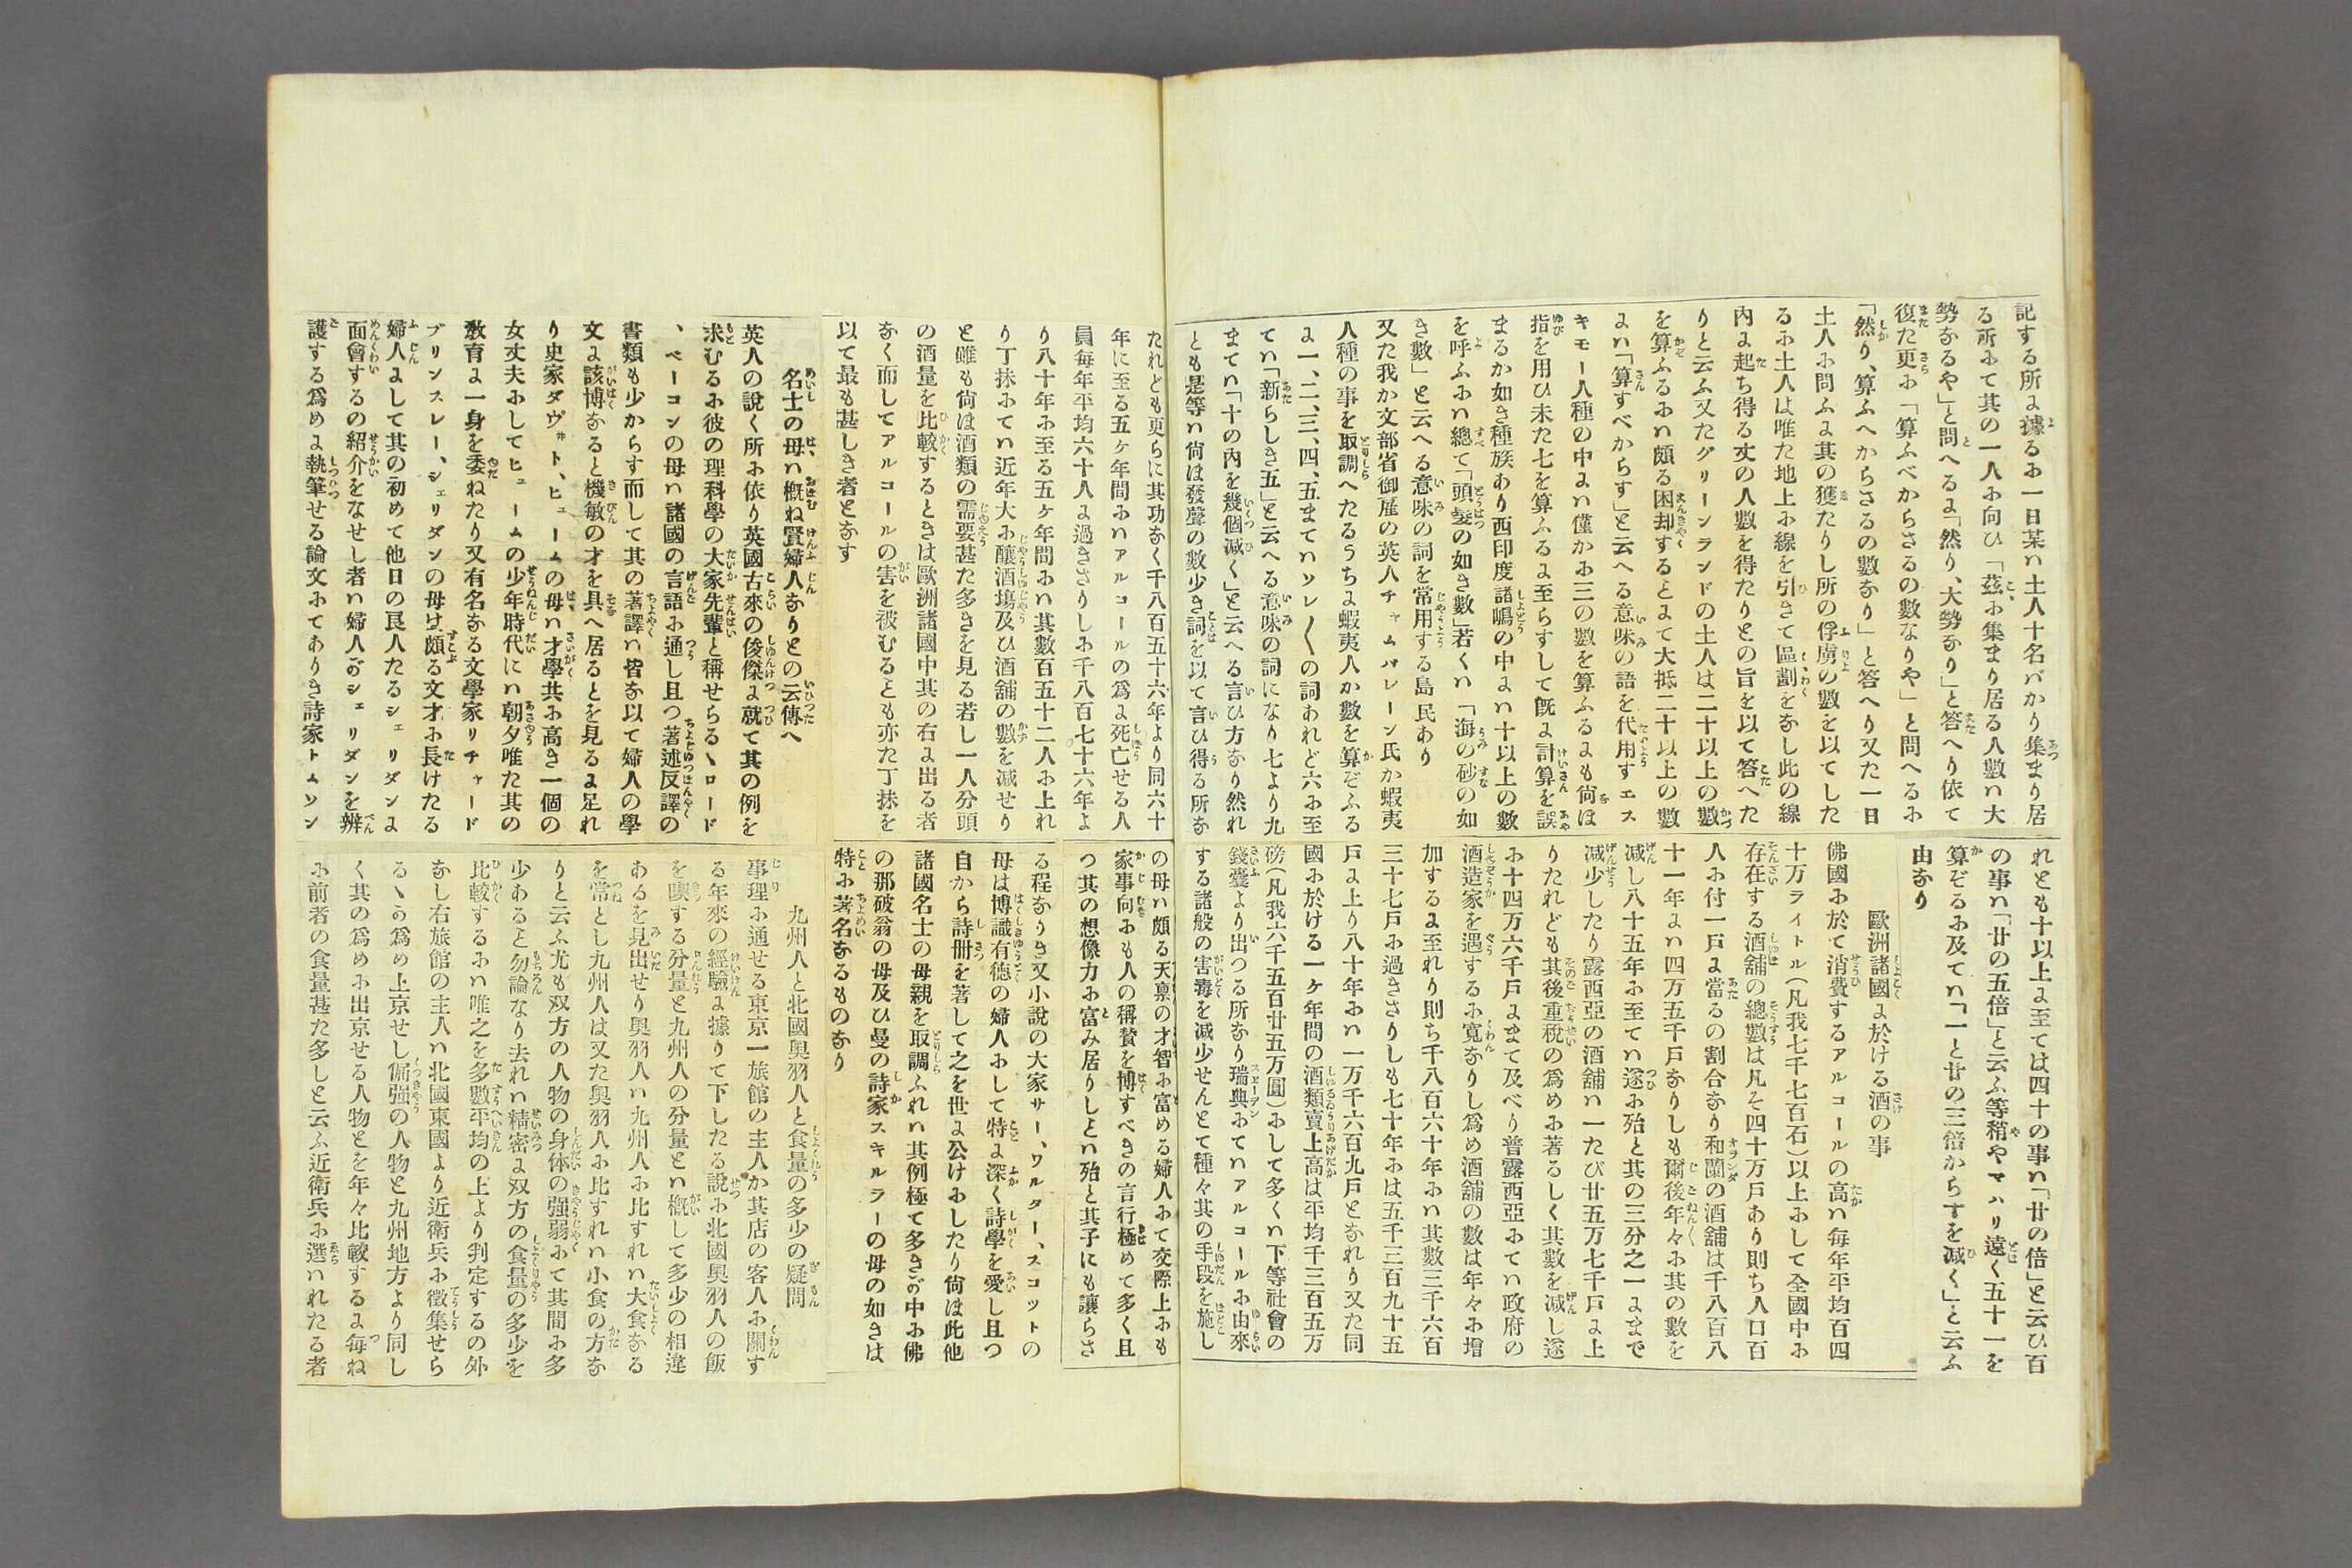 記する所よ據るふ一日某ハ土人十名バかり集まり居
る所ふて其の一人ふ向ひ「茲ふ集まり居る人數ハ大
勢なるや」と問へるよ「然り、大勢なり」と答へり依て
復た更ふ「算ふべからさるの數なりや」と問へるふ
「然り、算ふへからさるの數なり」と答へり又た一日
土人ふ問ふよ其の獲たりし所の俘虜の數を以てした
るふ土人は唯た地上ふ線を引きて區劃をなし此の線
內よ起ち得る丈の人數を得たりとの旨を以て答へた
りと云ふ又たグリーンランドの土人は二十以上の數
を算ふるふハ頗る困却するとよて大抵二十以上の數
よハ「算すべからす」と云へる意味の語を代用すエス
キモー人種の中よハ僅かふ三の數を算ふるよも尙ほ
指を用ひ未た七を算ふるよ至らすして旣よ計算を誤
まるか如き種族あり西印度諸嶋の中よハ十以上の數
を呼ふふハ總て「頭髮の如き數」若くハ「海の砂の如
き數」と云へる意味の詞を常用する島民あり
又た我か文部省御雇の英人チャムバレーン氏か蝦夷
人種の事を取調へたるうちよ蝦夷人か數を算ぞふる
よ一、二、三、四、五まてハソレ〱の詞あれど六ふ至
てハ「新らしき五」と云へる意味の詞になり七より九
まてハ「十の內を幾個減く」と云へる言ひ方なり然れ
とも是等ハ尙ほ發聲の數少き詞を以て言ひ得る所な
れとも十以上よ至ては四十の事ハ「廿の倍」と云ひ百
の事ハ「廿の五倍」と云ふ等稍やマハリ遠く五十一を
算ぞるふ及てハ「一と廿の三倍から十を減く」と云ふ
由なり
歐洲諸國よ於ける酒の事
佛國ふ於て消費するアルコールの高ハ毎年平均百四
十万ライトル(凡我七千七百石)以上ふして全國中ふ
存在する酒舖の總數は凡そ四十万戶あり則ち人口百
人ふ付一戶よ當るの割合なり和蘭の酒舖は千八百八
十一年よハ四万五千戶なりしも爾後年々ふ其の數を
減し八十五年ふ至てハ遂ふ殆と其の三分之一よまで
減少したり露西亞の酒舖ハ一たび廿五万七千戶よ上
りたれども其後重稅の爲めふ著るしく其數を減し遂
ふ十四万六千戶よまて及べり普露西亞ふてハ政府の
酒造家を遇するふ寬なりし爲め酒舖の數は年々ふ增
加するよ至れり則ち千八百六十年ふハ其數三千六百
三十七戶ふ過きさりしも七十年ふは五千三百九十五
戶よ上り八十年ふハ一万千六百九戶となれり又た同
國ふ於ける一ヶ年間の酒類賣上高は平均千三百五万
磅(凡我六千五百廿五万圓)ふして多くハ下等社會の
錢囊より出つる所なり瑞典ふてハアルコールふ由來
する諸般の害毒を減少せんとて種々其の手段を施し
たれども更らに其功なく千八百五十六年より同六十
年に至る五ヶ年間ふハアルコールの爲よ死亡せる人
員毎年平均六十人よ過きさりしふ千八百七十六年よ
り八十年ふ至る五ヶ年間ふハ其數百五十二人ふ上れ
り丁抹ふてハ近年大ふ釀酒塲及ひ酒舖の數を減せり
と雖も尙ほ酒類の需要甚た多きを見る若し一人分頭
の酒量を比較するときは歐洲諸國中其の右よ出る者
なく而してアルコールの害を被むるとも亦た丁抹を
以て最も甚しき者となす
名士の母ハ槪ね賢婦人なりとの云傳へ
英人の說く所ふ依り英國古來の俊傑よ就て其の例を
求むるふ彼の理科學の大家先輩と稱せらるヽロード
、ベーコンの母ハ諸國の言語ふ通し且つ著述反譯の
書類も少からす而して其の著譯ハ皆な以て婦人の學
文よ該博なると機敏の才を具へ居るとを見るよ足れ
り史家ダヴヰト、ヒュームの母ハ才學共ふ高き一個の
女丈夫ふしてヒュームの少年時代にハ朝夕唯た其の
敎育よ一身を委ねたり又有名なる文學家リチャード
ブリンスレー、シェリダンの母は頗る文才ふ長けたる
婦人よして其の初めて他日の良人たるシェリダンよ
面會するの紹介をなせし者ハ婦人がシェリダンを辨
護する爲めよ執筆せる論文ふてありき詩家トムソン
の母ハ頗る天禀の才智ふ富める婦人ふて交際上ふも
家事向ふも人の稱贊を博すべきの言行極めて多く且
つ其の想像力ふ富み居りしとハ殆と其子にも讓らさ
る程なりき又小說の大家サー、ワルター、スコットの
母は博識有德の婦人ふして特よ深く詩學を愛し且つ
自から詩冊を著して之を世よ公けふしたり尙ほ此他
諸國名士の母親を取調ふれハ其例極て多きが中ふ佛
の那破翁の母及ひ曼の詩家スキルラーの母の如きは
特ふ著名なるものなり
九州人と北國奧羽人と食量の多少の疑問
事理ふ通せる東京一旅館の主人か其店の客人ふ關す
る年來の經驗よ據りて下したる說ふ北國奧羽人の飯
を喫する分量と九州人の分量とハ槪して多少の相違
あるを見出せり奧羽人ハ九州人ふ比すれハ大食なる
を常とし九州人は又た奧羽人ふ比すれハ小食の方な
りと云ふ尤も双方の人物の身体の强弱ふて其間ふ多
少あると勿論なり去れハ精密よ双方の食量の多少を
比較するふハ唯之を多數平均の上より判定するの外
なし右旅館の主人ハ北國東國より近衞兵ふ徵集せら
るヽの爲め上京せし倔强の人物と九州地方より同し
く其の爲めふ出京せる人物とを年々比較するよ每ね
ふ前者の食量甚た多しと云ふ近衞兵ふ選ハれたる者